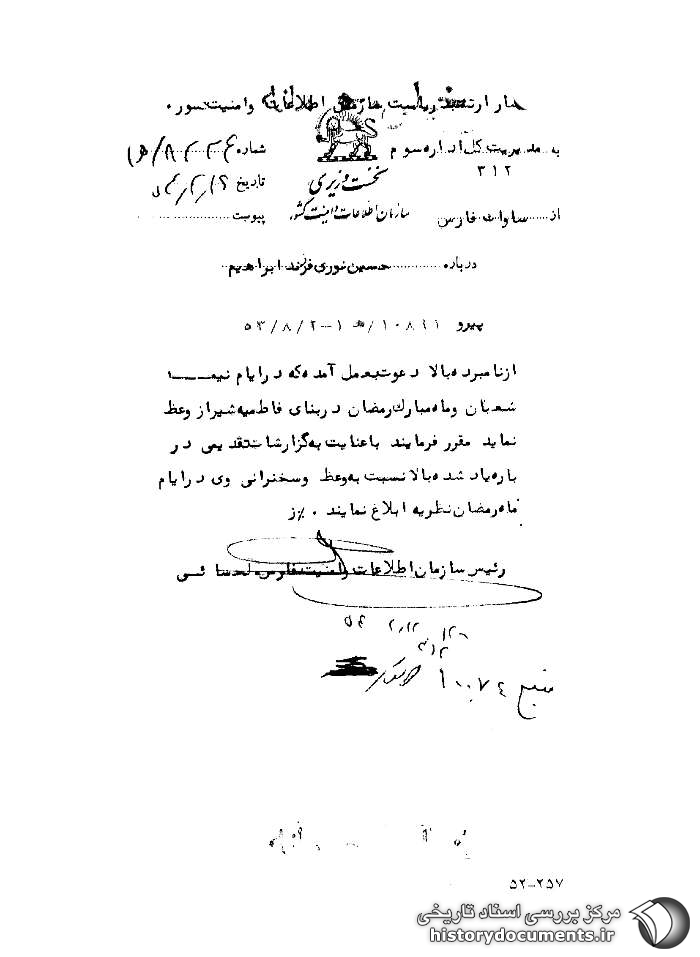 ریاست سازمان اطلاعات و امنیت کشور
به مدیریت کل اداره سوم
۳۱۲
شماره
تاریخ
پیوست
نخست وزیری
سازمان اطلاعات و امنیت کشور
از ساواک فارس
درباره حسین نوری فرزند ابراهیم
پیرو ۱۰۸۹۱/ه‍ ۱-۵۳/۸/۲
از نامبرده بالا دعوت بعمل آمده که در ایام نیمه
شعبان و ماه مبارک رمضان در بنای فاطمیه شیراز وعظ
نماید مقرر فرمایند با عنایت به گزارشات تقدیمی در
باره یاد شده بالا نسبت به وعظ و سخنرانی وی در ایام
ماه رمضان نظریه ابلاغ نمایند ۰٪ز
رئیس سازمان اطلاعات و امنیت فارس
۳۱۲
منبع
۵۲-۲۵۷
مرکز بررسی اسناد تاریخی
historydocuments.ir